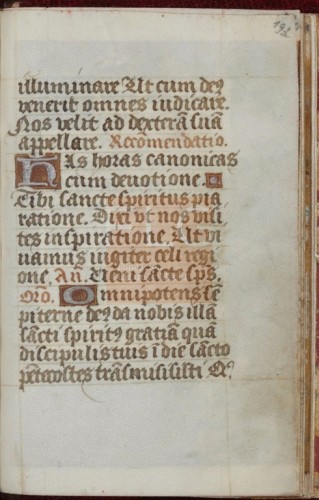 192
illuminare Ut cum deꝰ
venerit omnes iudicare.
Nos velit ad dexterā suā
appellare. Recōmendatio.
Has horas canonicas
cum deuotione.
Tibi sancte spiritus pia
ratione. Dixi vt nos visi
tes inspiratione. Ut vi
uamus iugiter celi regi
one. Añ. Ueni sācte sp̄s.
Orō. Omnipotens sē
piterne deꝰ da nobis illā
sācti spiritꝰ gratiā quā
discipulis tuis ī die sācto
pētecostes trāsmisisti Q̇